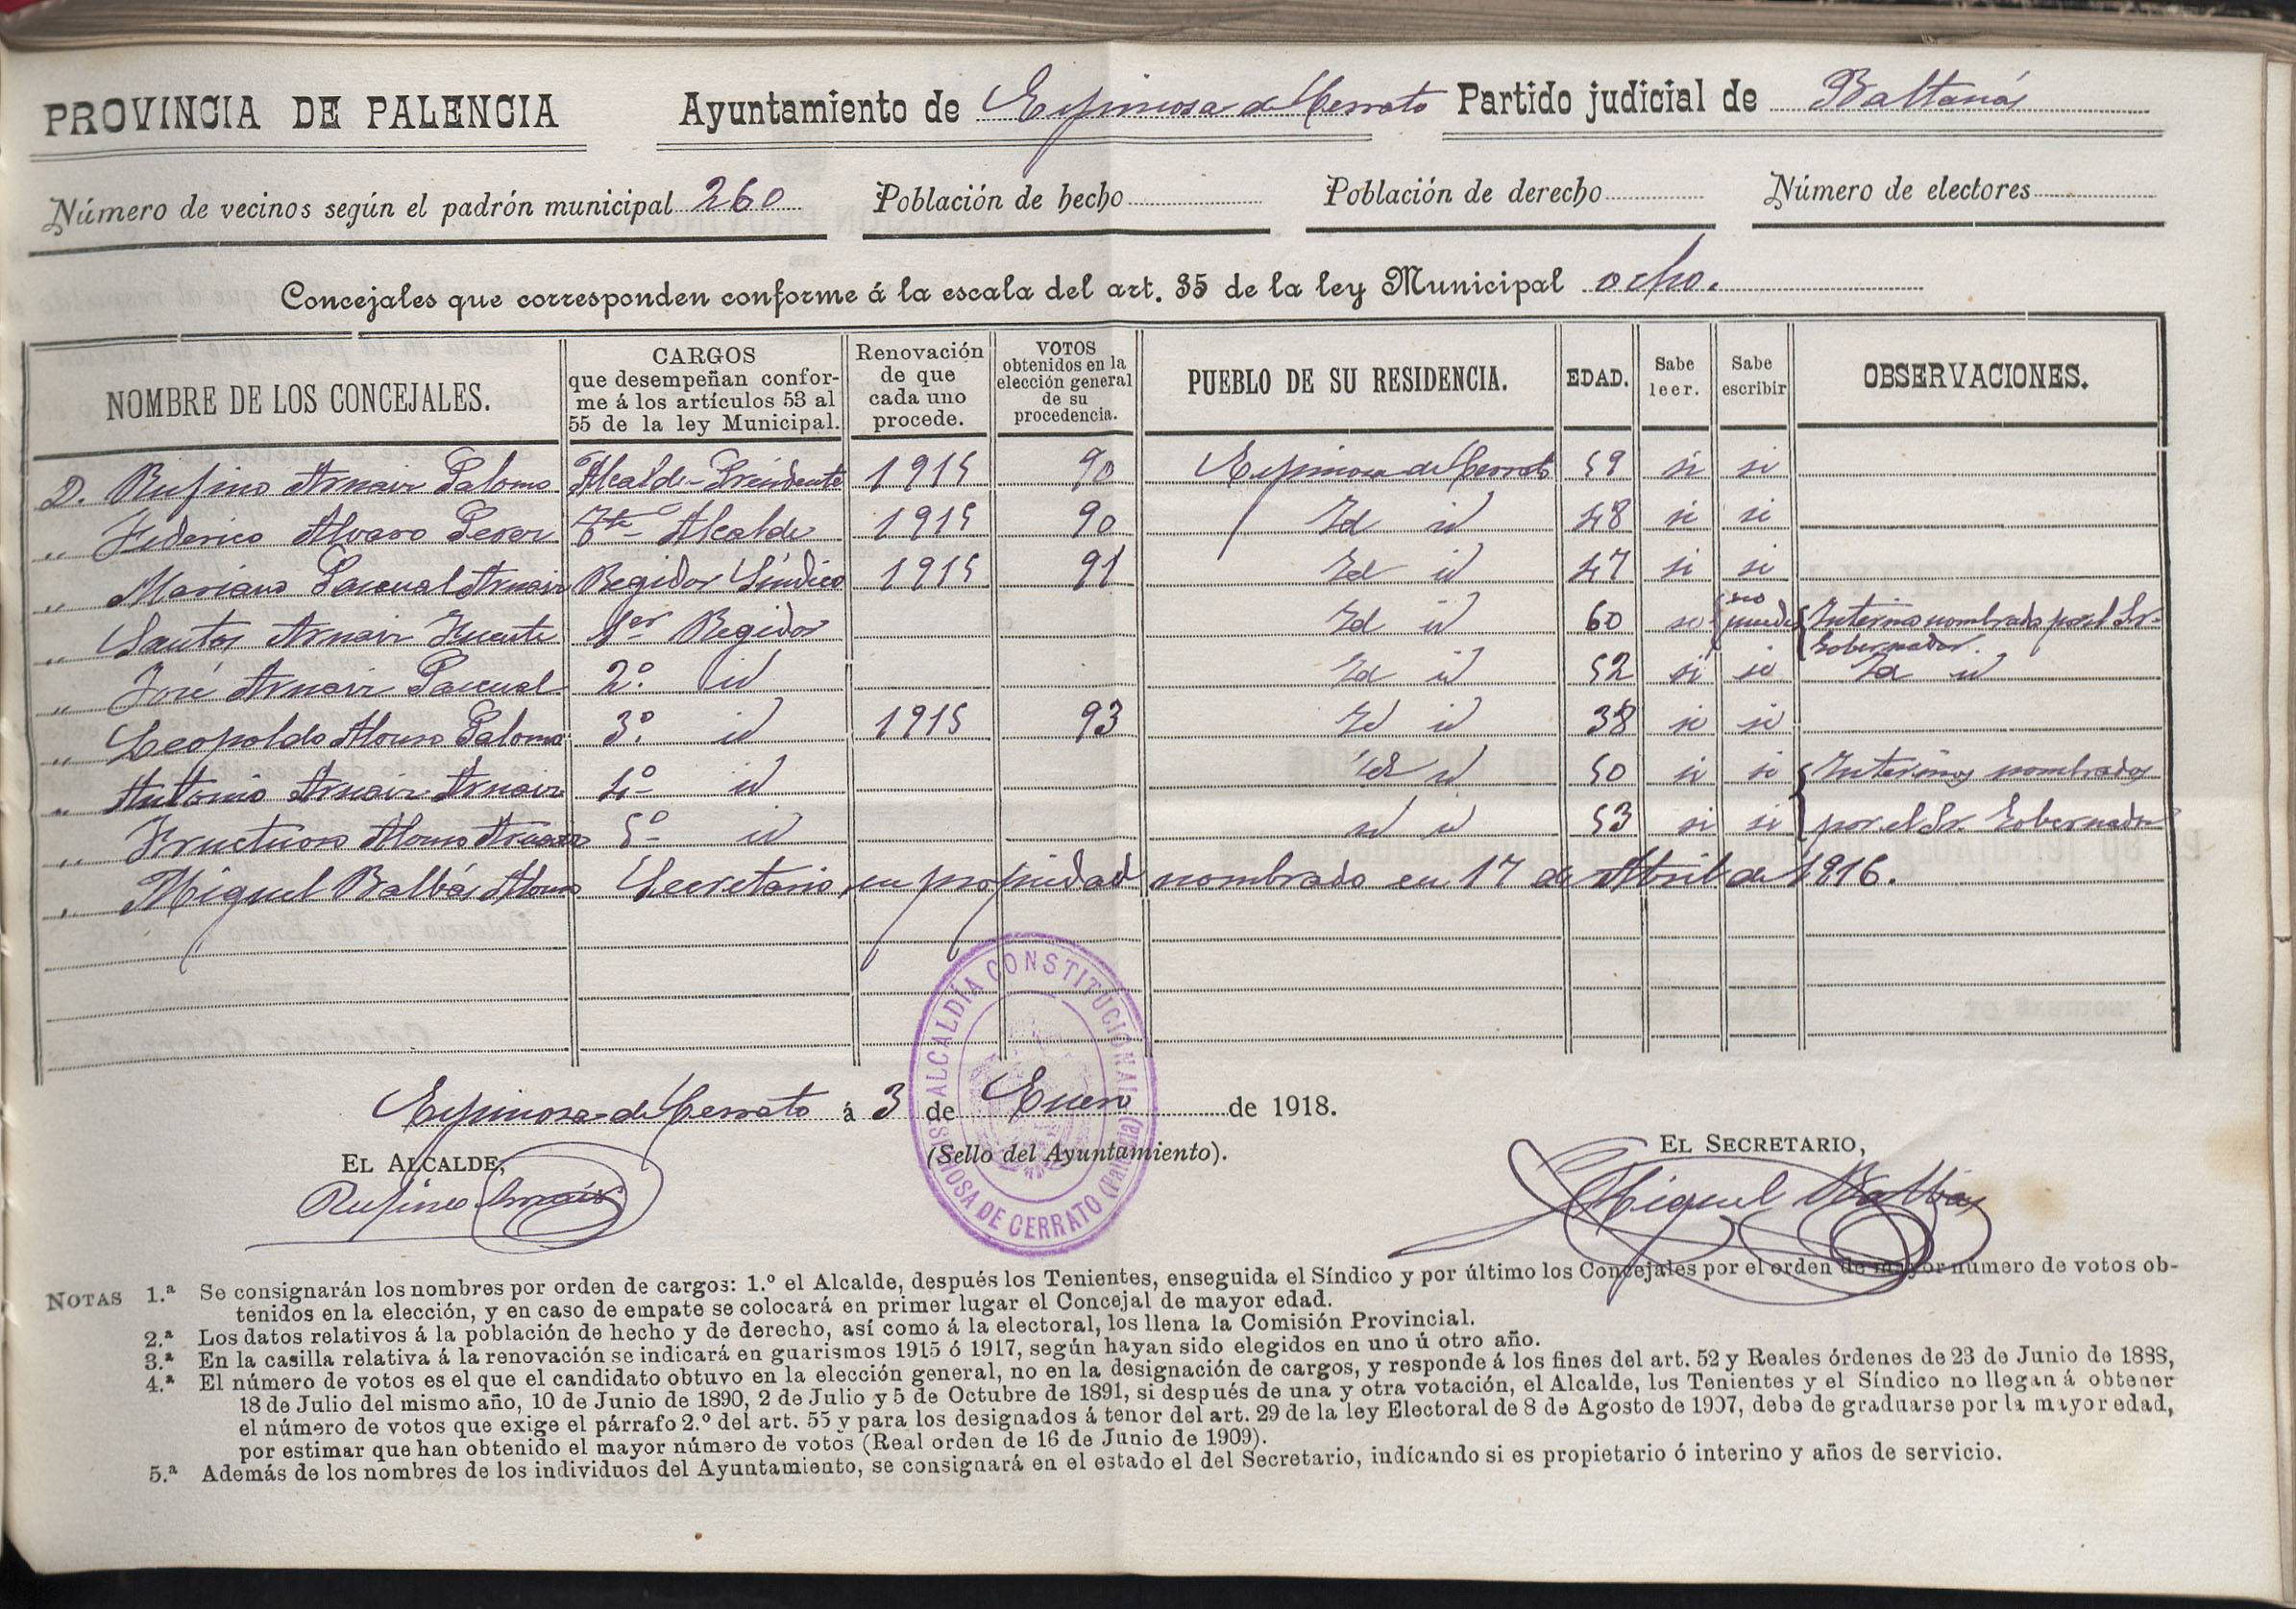 PROVINCIA DE PALENCIA Ayuntamiento de Espinosa de Cerrato Partido judicial de Baltanás
Número de vecinos según el padrón municipal 260 Población de hecho Población de derecho Número de electores
Concejales que corresponden conforme á la escala del art. 35 de la ley Municipal ocho.
NOMBRE DE LOS CONCEJALES. CARGOS que desempeñan confor- me á los artículos 53 al 55 de la ley Municipal. Renovación de que cada uno procede. VOTOS obtenidos en la elección general de su procedencia. PUEBLO DE SU RESIDENCIA. EDAD. Sabe leer. Sabe escribir OBSERVACIONES.
D. Rufino Arnaiz Palomo Alcalde-Presidente 1915 90 Espinosa de Cerrato 59 si si
„ Federico Alvaro Perez Tte Alcalde 1915 90 Id id 48 si si
„ Mariano Pascual Arnaiz Regidor Síndico 1915 91 Id id 47 si si
„ Santos Arnaiz Fuente 1er Regidor Id id 60 no puede Interino nombrado por el Sr. Gobernador.
„ José Arnaiz Pascual 2º id Id id 52 si si Id id
„ Leopoldo Alonso Palomo 3º id 1915 93 Id id 38 si si
„ Antonio Arnaiz Arnaiz 4º id Id id 50 si si Interinos nombrados
„ Fructuoso Alonso Arnaiz 5º id id id 53 si si por el Sr. Gobernador
„ Miguel Balbás Alonso Secretario en propiedad nombrado en 17 de Abril de 1916.
Espinosa de Cerrato á 3 de Enero de 1918.
EL ALCALDE, (Sello del Ayuntamiento). EL SECRETARIO,
Rufino Arnaiz Miguel Balbás
ALCALDÍA CONSTITUCIONAL
ESPINOSA DE CERRATO (Palencia)
NOTAS 1.ª Se consignarán los nombres por orden de cargos: 1.º el Alcalde, después los Tenientes, enseguida el Síndico y por último los Concejales por el orden de mayor número de votos ob-
tenidos en la elección, y en caso de empate se colocará en primer lugar el Concejal de mayor edad.
2.ª Los datos relativos á la población de hecho y de derecho, así como á la electoral, los llena la Comisión Provincial.
3.ª En la casilla relativa á la renovación se indicará en guarismos 1915 ó 1917, según hayan sido elegidos en uno ú otro año.
4.ª El número de votos es el que el candidato obtuvo en la elección general, no en la designación de cargos, y responde á los fines del art. 52 y Reales órdenes de 23 de Junio de 1888,
18 de Julio del mismo año, 10 de Junio de 1890, 2 de Julio y 5 de Octubre de 1891, si después de una y otra votación, el Alcalde, los Tenientes y el Síndico no llegan á obtener
el número de votos que exige el párrafo 2.º del art. 55 y para los designados á tenor del art. 29 de la ley Electoral de 8 de Agosto de 1907, debe de graduarse por la mayor edad,
por estimar que han obtenido el mayor número de votos (Real orden de 16 de Junio de 1909).
5.ª Además de los nombres de los individuos del Ayuntamiento, se consignará en el estado el del Secretario, indicando si es propietario ó interino y años de servicio.